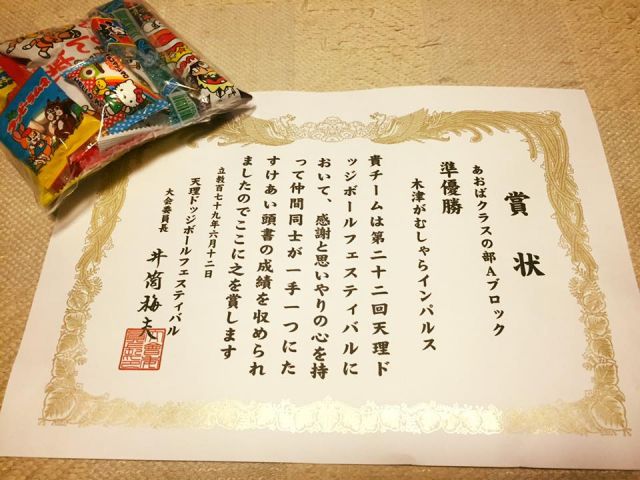 賞状
あおばクラスの部Aブロック
準優勝
木津がむしゃらインパルス
貴チームは第二十二回天理ド
ッジボールフェスティバルに
おいて、感謝と思いやりの心を持
って仲間同士が一手一つにた
すけあい頭書の成績を収められ
ましたのでここに之を賞します
立教百七十九年六月十二日
天理ドッジボールフェスティバル
大会委員長
井筒梅夫